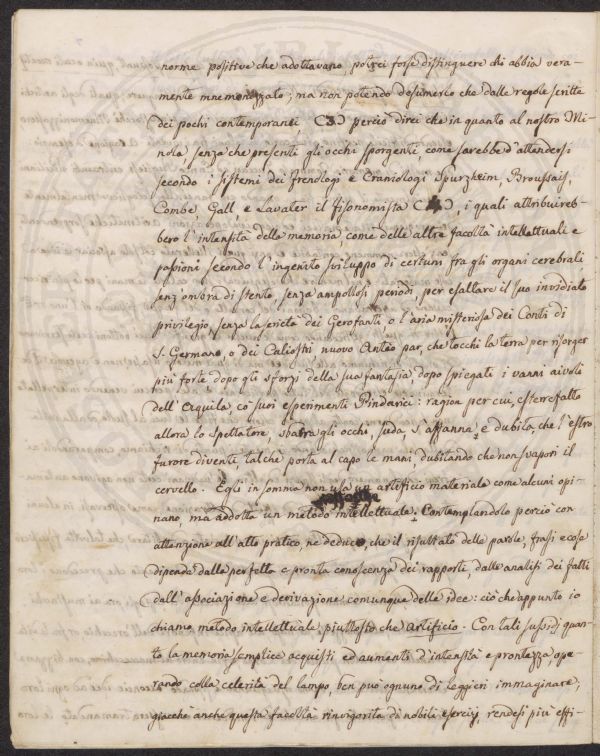 norme positive che adottavano, potrei forse distinguere chi abbia vera-
mente mnemonizzato; ma non potendo desumerlo che dalle regole scritte
dei pochi contemporanei, (3) perciò direi che in quanto al nostro Mi-
nola, senza che presenti gli occhi sporgenti, come sarebbe d'attendersi
secondo i sistemi dei Frenologi e Craniologi Spurzheim, Broussais,
Combe, Gall e Lavater il fisonomista (4), i quali attribuireb-
bero l'intensità della memoria, come delle altre facoltà intellettuali e
passioni secondo l'ingenito sviluppo di certuni fra gli organi cerebrali
senz'ombra di stento, senza ampollosi periodi, per esaltare il suo invidiato
privilegio, senza la serietà dei Gerofanti o l'aria misteriosa dei Conti di
S. Germano, o dei Caliostri nuovo Anteo par, che tocchi la terra per risorger
più forte, dopo gli sforzi della sua fantasia, dopo spiegati i vanni a i voli
dell'Aquila, co' suoi esperimenti Pindarici: ragion per cui, esterefatto
allora lo spettatore, sbarra gli occhi, suda, s'affanna, e dubita, che l'estro
furore diventi, talchè porta al capo le mani, dubitando che non svapori il
cervello. Egli in somma non usa un artificio materiale come alcuni opi-
nano, ma addotta un metodo intellettuale. Contemplandolo perciò con
attenzione all'atto pratico, ne deduco, che il risultato delle parole, frasi e cose
dipenda dalla perfetta e pronta conoscenza dei rapporti, dalle analisi dei fatti
dall'associazione e derivazione comunque delle idee: ciò che appunto io
chiamo metodo intellettuale piuttosto che artificio. Con tali sussidj quan-
to la memoria semplice acquisti ed aumenti d'intensità e prontezza, ope-
rando colla celerità del lampo, ben può ognuno di leggieri immaginare,
giacchè anche questa facoltà rinvigorita da nobili esercizj, rendesi più effi-